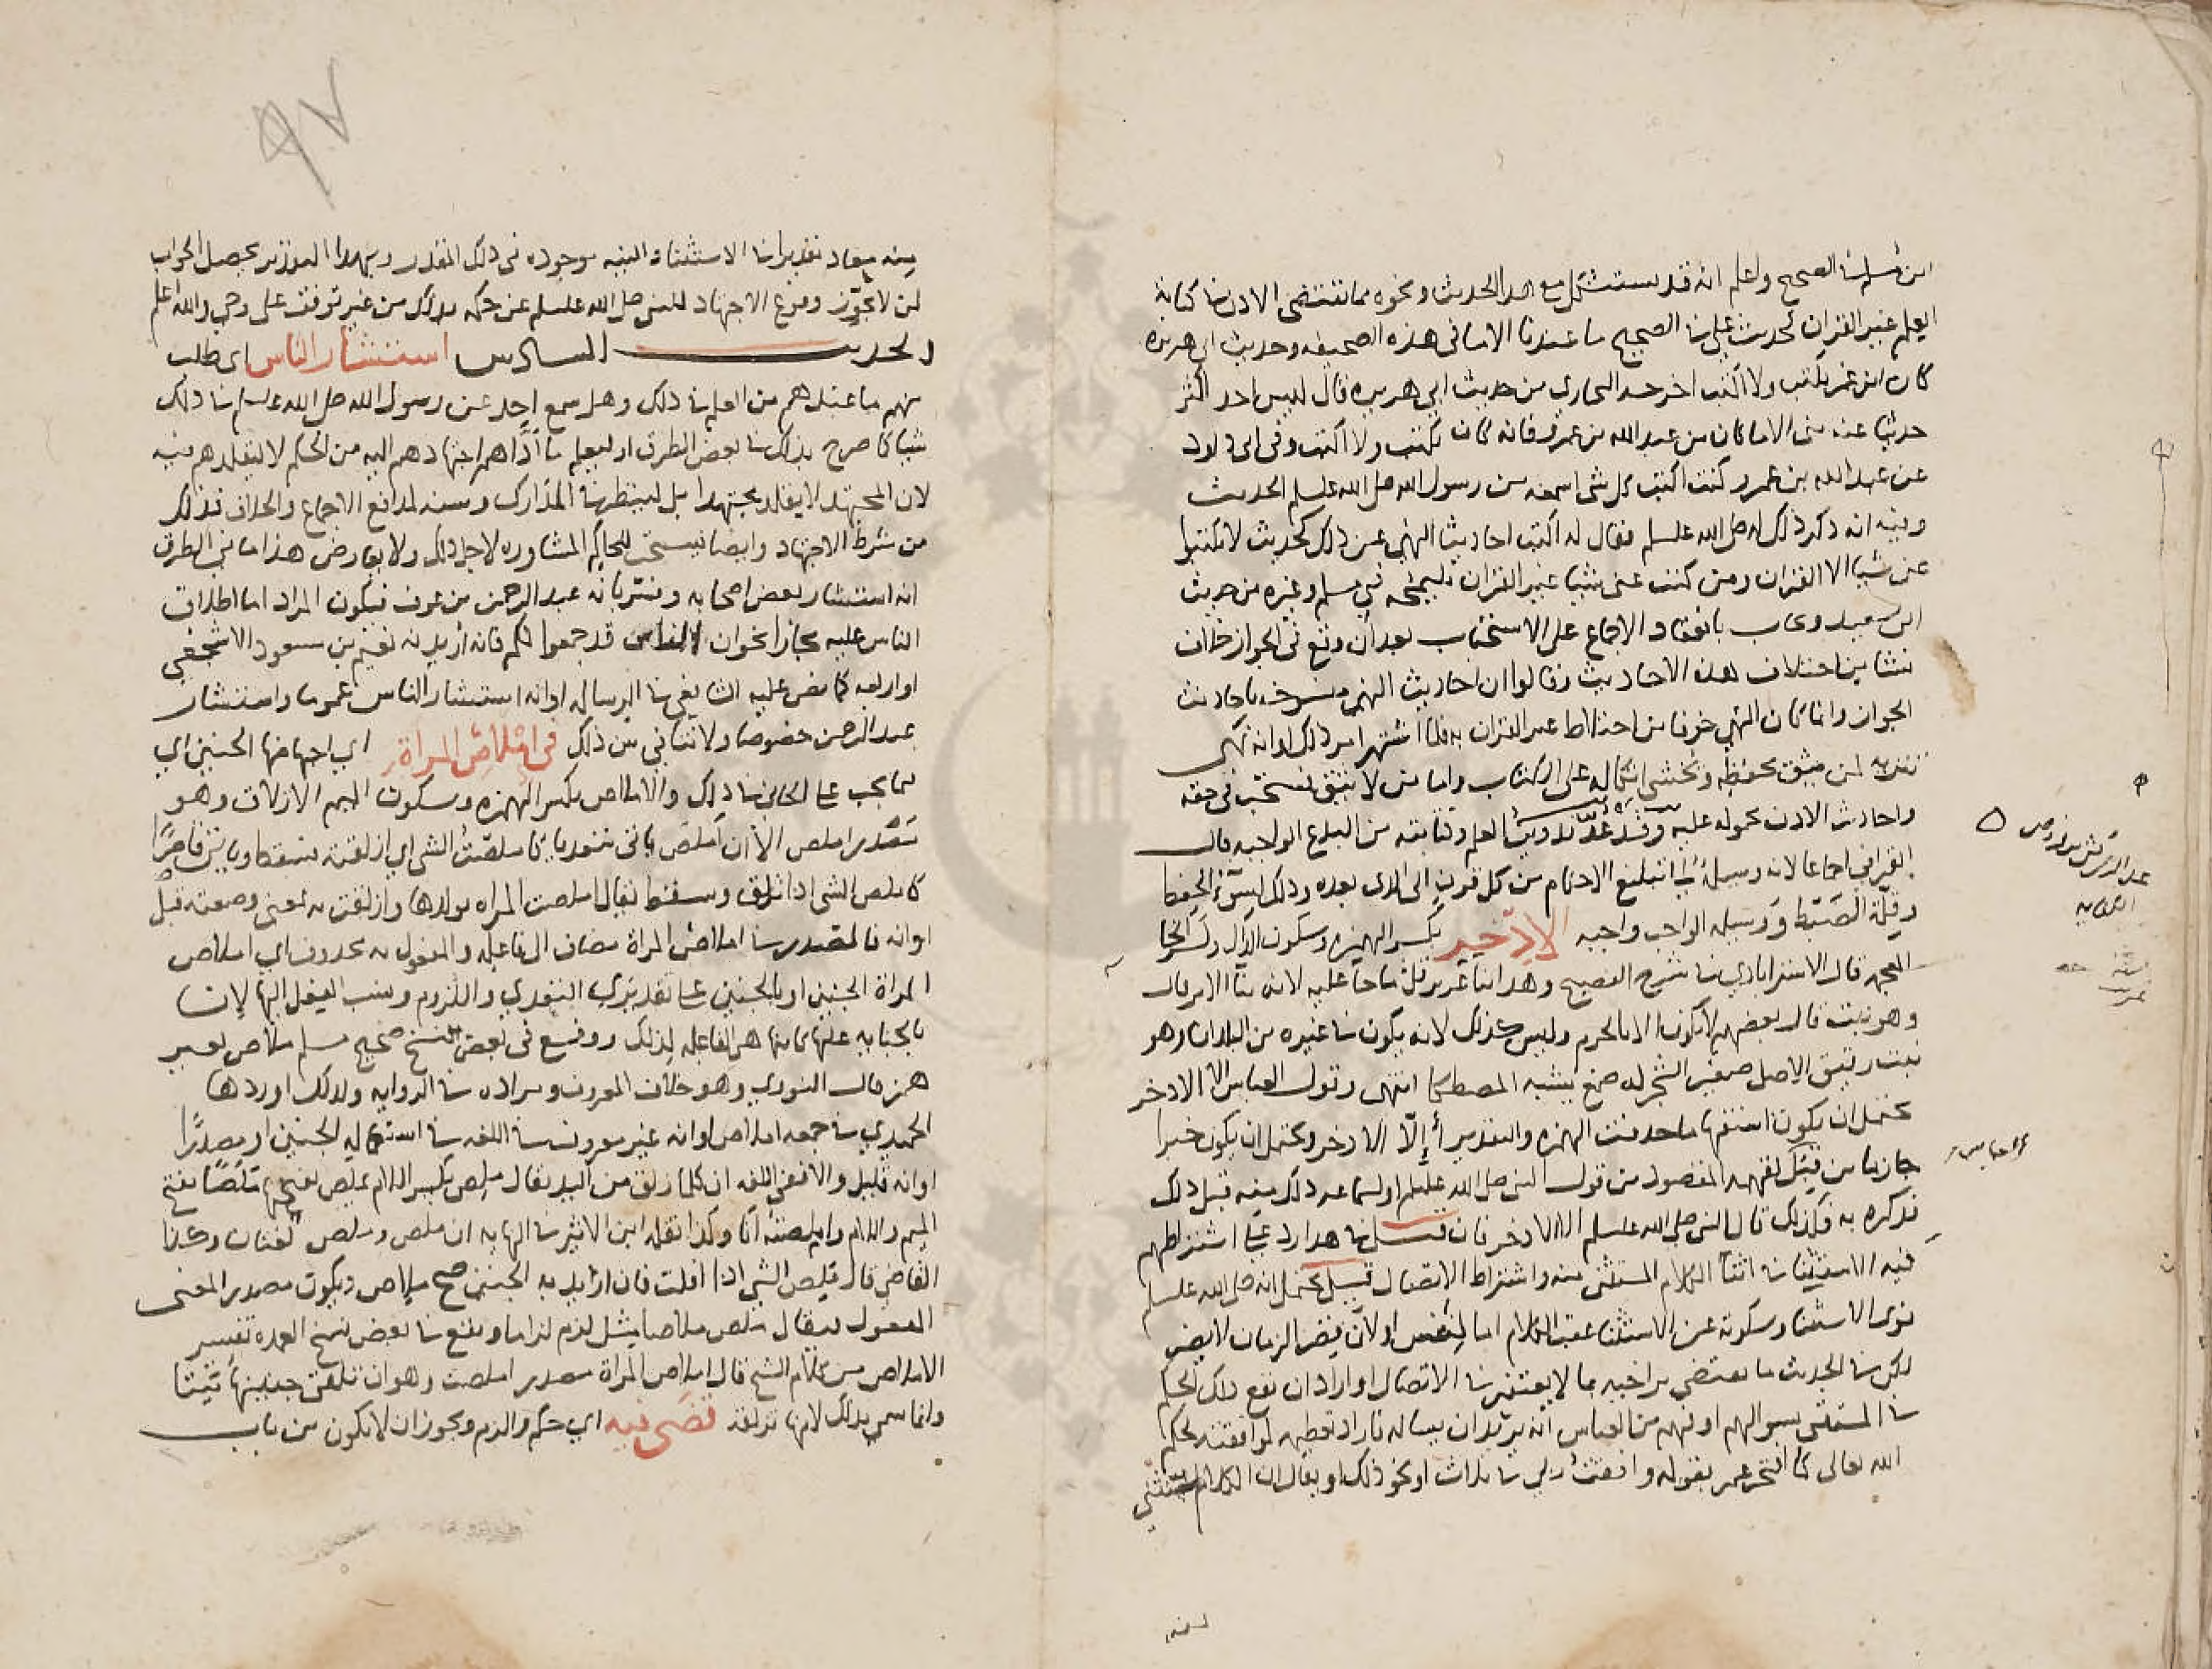 ابن مسلم في الصحيح واعلم انه قد يستشكل مع هذا الحديث ونحوه مما يقتضي الاذن في كتابة
العلم غير القران كحديث علي في الصحيح ما عندنا الا ما في هذه الصحيفه وحديث ابي هريره
كان ابن عمر يكتب ولا اكتب اخرجه البخاري من حديث ابي هريره قال ليس احد اكثر
حديثا عنه مني الا ما كان من عبد الله بن عمرو فانه كان يكتب ولا اكتب وفي ابي داود
عن عبد الله بن عمرو كنت اكتب كل شي اسمعه من رسول الله صلى الله عليه وسلم الحديث
وفيه انه ذكر ذلك له صلى الله عليه وسلم فقال له اكتب احاديث النهي عن ذلك كحديث لا تكتبوا
عني شيا الا القران ومن كتب عني شيا غير القران فليمحه في مسلم وغيره من حديث
ابي سعيد ويجاب بانعقاد الاجماع على الاستحباب بعد ان وقع في الجواز خلاف
نشا من اختلاف هذه الاحاديث وقالوا ان احاديث النهي منسوخه باحاديث
الجواز وانما كان النهي خوفا من اختلاط غير القران به فلما اشتهر امر ذلك او انه نهي
تنزيه لمن يثق بحفظه ويخشى اتكاله على الكتاب واما من لا يثق فمستحب في حقه
واحاديث الاذن محموله عليه وقد عد تدوين العلم وكتابته من البدع الواجبه قال
القرافي اجماعا لانه وسيلة الى تبليغ الاحكام من كل قرن الى الذي بعده وذلك لسوء الحفظ
وقلة الضبط ووسيله الواجب واجبه الاذخر بكسر الهمزه وسكون الذال وكسر الخا
المعجمه قال الاستراباذي في شرح الفصيح وهذا بناء عزيز قل ما جا عليه الابنه
وهو نبت قال بعضهم لا يكون الا بالحرم وليس كذلك لانه يكون في غيره من البلدان وهو
نبت رقيق الاصل صغير الشجر له صمغ يشبه المصطكا انتهى وقول العباس الا الاذخر
يحتمل ان يكون استفهاما حذفت الهمزه والتقدير أإلا الاذخر ويحتمل ان يكون خبرا
جازما من قبل لفهمه المقصود من قول النبي صلى الله عليه وسلم او لسماعه ذلك منه قبل ذلك
فذكره به فلذلك قال النبي صلى الله عليه وسلم الا الاذخر فان قيل هذا رد على اشتراطهم
نية الاستثنا في اثنا الكلام المستثنى منه واشتراط الاتصال قيل يحتمل انه صلى الله عليه وسلم
نوى الاستثنا وسكوته عن الاستثنا عقب الكلام اما لتنفس او لان يقصر الزمان اليسير
لكن في الحديث ما يقتضي تراخيه بما لا يغتفر في الاتصال او اراد ان يقع ذلك الحكم
في المستثنى بسوالهم او فهم من العباس انه يريد ان يساله فاراد تعظيمه لموافقته لحكم
الله تعالى كما افتخر عمر بقوله وافقت ربي في ثلاث او نحو ذلك او يقال ان الكلام المستثنى
العباس
منه يعاد تقديرا في الاستثناء والنيه موجوده في ذلك المقدر وبهذا التقرير يحصل الجواب
لمن لا يجوز وقوع الاجتهاد للنبي صلى الله عليه وسلم عن حكمه بذلك من غير توقف على وحي والله اعلم
الحديث السادس استشار الناس اي طلب
منهم ما عندهم من العلم في ذلك وهل سمع احد عن رسول الله صلى الله عليه وسلم في ذلك
شيا كما صرح بذلك في بعض الطرق او ليعلم ما اداهم اجتهادهم اليه من الحكم لا ليقلدهم فيه
لان المجتهد لا يقلد مجتهدا بل لينظر في المدارك ومنه لمدافع الاجماع والخلاف فذلك
من شرط الاجتهاد وايضا يستحب للحاكم المشاوره لاجل ذلك ولا يعارض هذا ما في الطرق
انه استشار بعض اصحابه وفسر بانه عبد الرحمن بن عوف فيكون المراد اما اطلاق
الناس عليه مجازا نحو ان الناس قد جمعوا لكم فانه اريد به نعيم بن مسعود الاشجعي
او اربعه كما نص عليه الشافعي في الرساله او انه استشار الناس عموما واستشار
عبد الرحمن خصوصا ولا تنافي بين ذلك في املاص المراة اي اجهاضها الجنين اي
ما يجب على الجاني في ذلك والاملاص بكسر الهمزه وسكون الميم الازلاق وهو
مصدر املص الا ان املص ياتي متعديا كاملصت الشي اي ازلقته فسقط وياتي قاصرا
كاملص الشي اذا زلق وسقط يقال املصت المراه بولدها وازلقت به بمعنى وضعته قبل
اوانه فالمصدر في املاص المراة مضاف الى فاعله والمفعول به محذوف اي املاص
المراة الجنين او بالجنين على تقديري التعدي واللزوم ونسب الفعل اليها لان
بالجنايه عليها كانها هي الفاعله لذلك ووقع في بعض نسخ صحيح مسلم ملاص بغير
همز قال النووي وهو خلاف المعروف ومراده في الروايه ولذلك اوردها
الحميدي في جمعه املاص او انه غير معروف في اللغه في استعماله للجنين او مصدرا
او انه قليل والا ففي اللغه ان كل ما زلق من اليد يقال ملص بكسر اللام يملص بفتحها ملصا بفتح
الميم واللام واملصته انا وكذا نقله ابن الاثير في النهايه ان ملص واملص لغتان وكذا
القاضي قال ملص الشي اذا افلت فان اريد به الجنين صح ملاص ويكون مصدرا لمعنى
المفعول فيقال ملص ملاصا مثل لزم لزاما ووقع في بعض نسخ العمده تفسير
الاملاص من كلام الشيخ قال املاص المراة مصدر املصت وهو ان تلقي جنينها ميتا
وانما سمي بذلك لانها تزلقه قضى فيه اي حكم والزم ويجوز ان لا يكون من باب